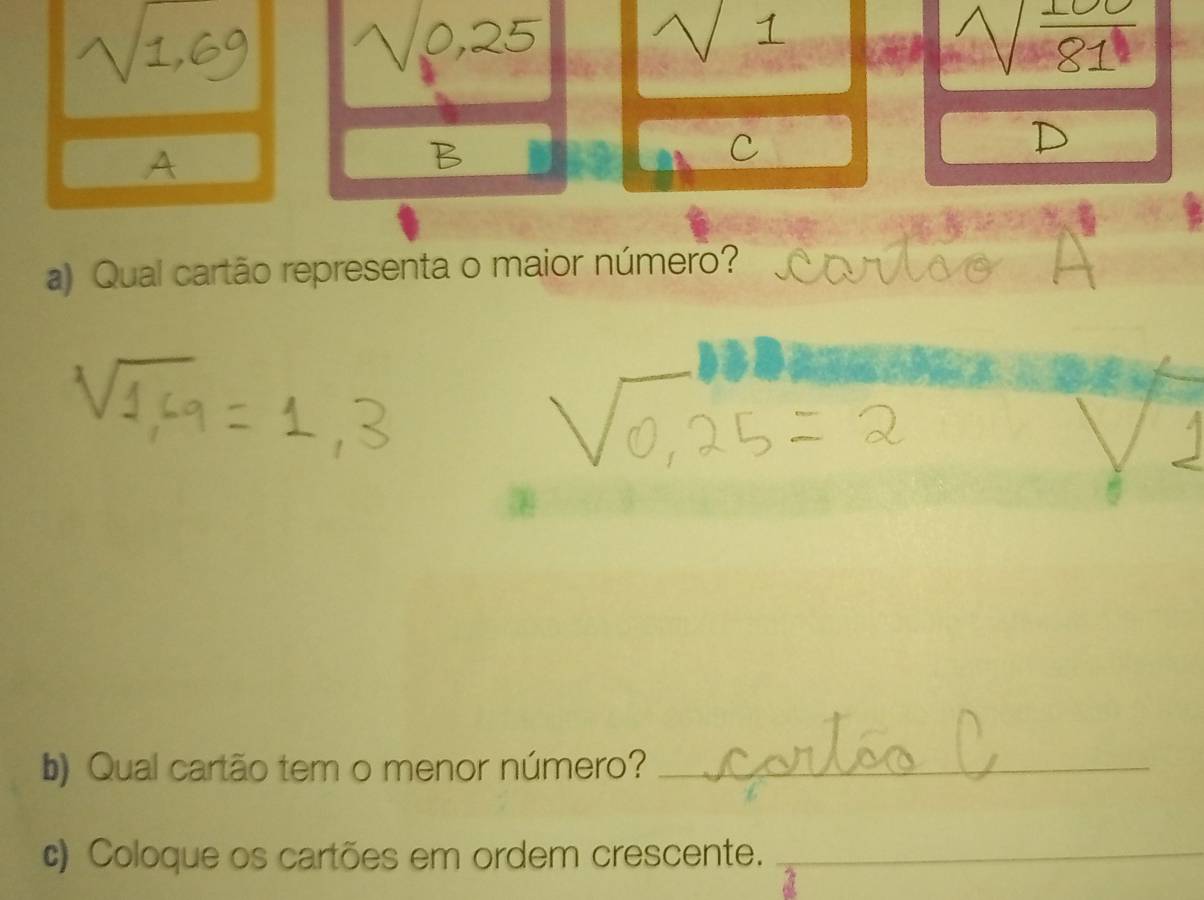 √1,69 √0,25 √1 √100/81
A B C D
a) Qual cartão representa o maior número? cartão A
√1,69 = 1,3 √0,25 = 2 √1
b) Qual cartão tem o menor número? cartão C
c) Coloque os cartões em ordem crescente.